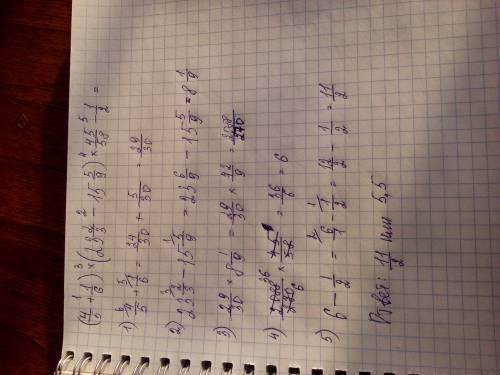 (4/5 + 1/6) × (23 2/3 − 15 5/9) × 45/58 − 1/2 =
1) 4/5 + 1/6 = 24/30 + 5/30 = 29/30
2) 23 2/3 − 15 5/9 = 23 6/9 − 15 5/9 = 8 1/9
3) 29/30 × 8 1/9 = 29/30 × 72/9 = 2088/270
4) 2088/270 × 45/58 = 36/6 = 6
5) 6 − 1/2 = 6/1 − 1/2 = 12/2 − 1/2 = 11/2
Ответ: 11/2 или 5,5